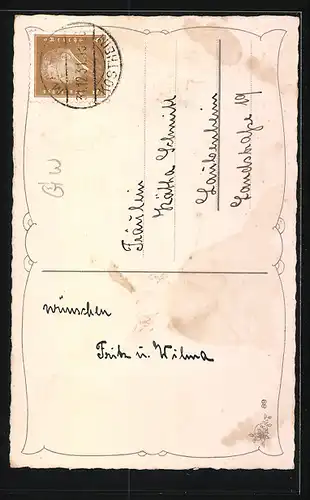 Fräulein
Kätha Schmitt
Laubenheim
Landstraße 19
wünschen
Fritz u. Wilma